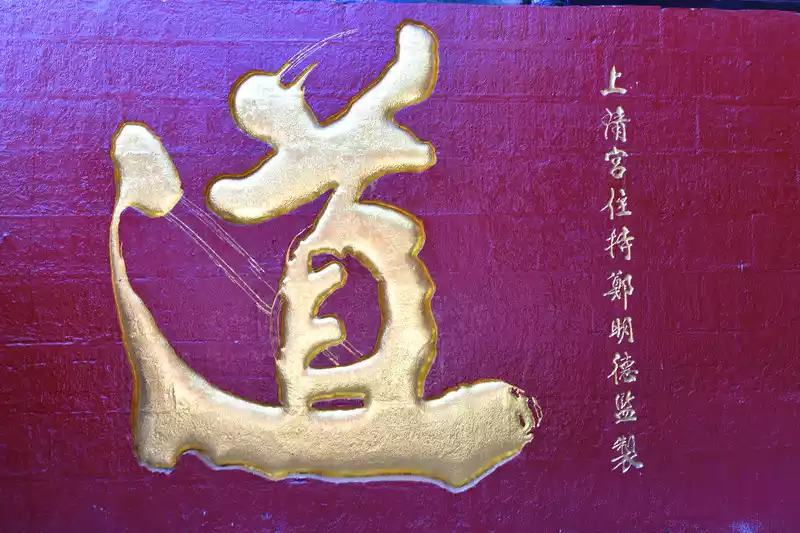 道
上清宮住持鄭明德監製